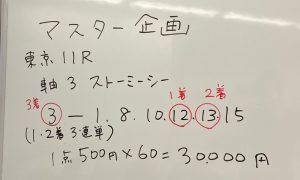 マスター企画
東京11R
軸3 ストーミーシー
3着 1着 2着
3 ー 1. 8. 10. 12. 13. 15
(1.2着3連単)
1点500円×60=30.000円